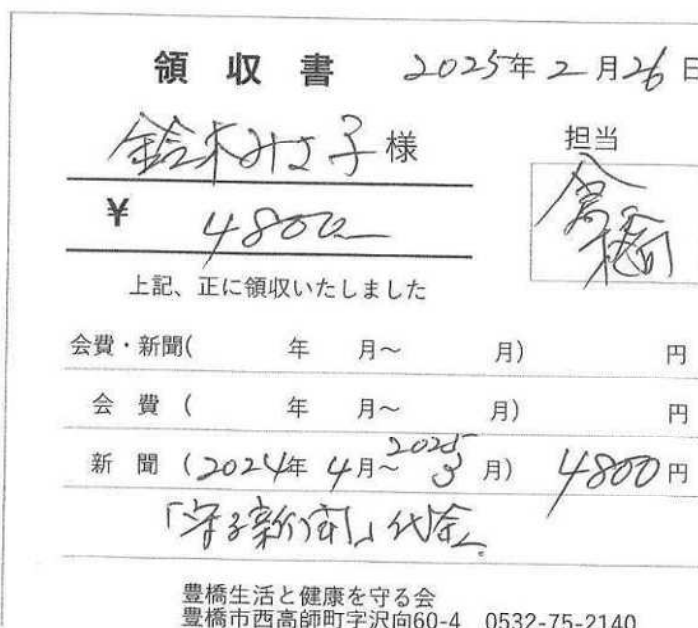 領収書 2025年2月26日
鈴木みさ子様 担当
¥ 4800 倉橋
上記、正に領収いたしました
会費・新聞( 年 月〜 月) 円
会費( 年 月〜 月) 円
新聞(2024年4月〜2025 3月) 4800円
「守る新聞」代金。
豊橋生活と健康を守る会
豊橋市西高師町字沢向60-4 0532-75-2140